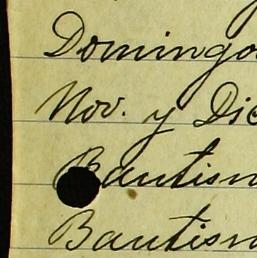 Domingo
Nov. y Dic
Bautism
Bautism